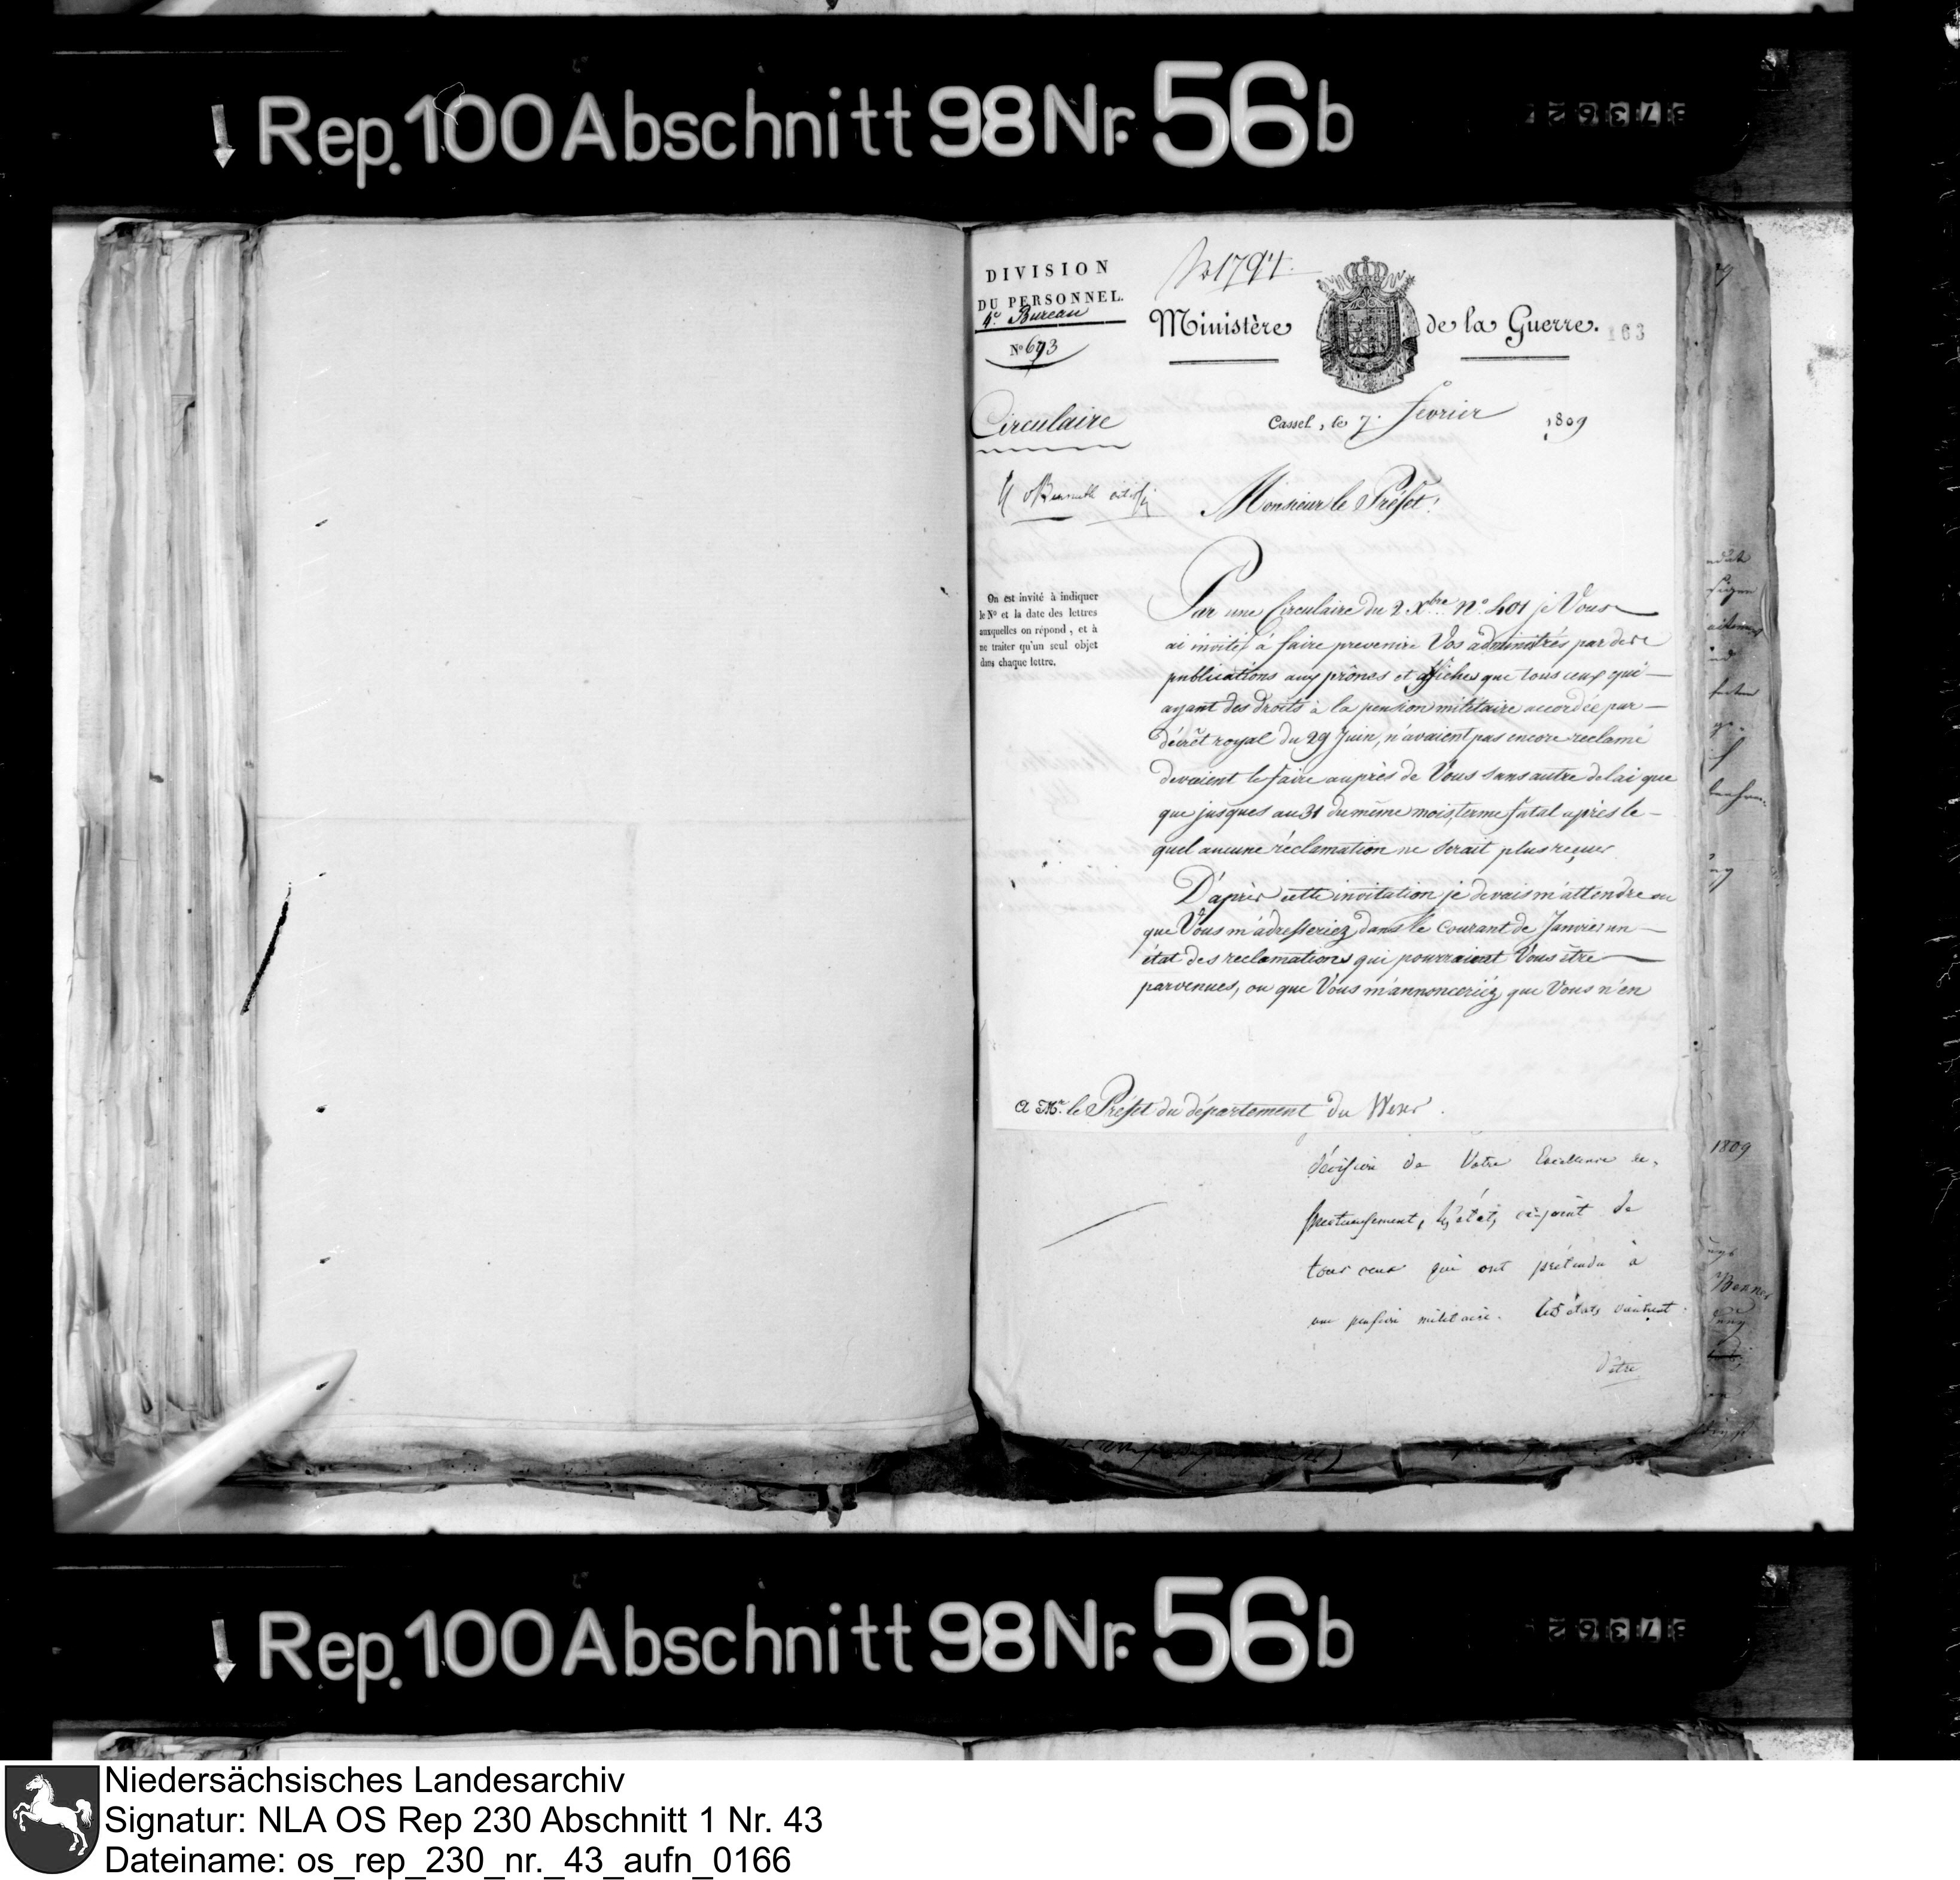 Rep. 100 Abschnitt 98 Nr. 56b
DIVISION
DU PERSONNEL.
4e. Bureau
No 693
No 1794.
Ministère de la Guerre.
163
Circulaire
Cassel, le 7. fevrier 1809
Monsieur le Préfet!
On est invité à indiquer
le No et la date des lettres
auxquelles on répond, et à
ne traiter qu'un seul objet
dans chaque lettre.
Par une Circulaire du 2 Xbre No. 401 je Vous
ai invité à faire prevenir Vos administrés par
publications aux prônes et affiches que tous ceux qui
ayant des droits à la pension militaire accordée par
décrêt royal du 29 Juin, n'avaient pas encore reclamé
devaient le faire auprès de Vous sans autre delai que
que jusques au 31 du même mois, terme fatal après le-
quel aucune réclamation ne serait plus reçue.
D'après cette invitation je devais m'attendre ou
que Vous m'adresseriez dans le courant de Janvier un
état des reclamations qui pourraient Vous être
parvenues, ou que Vous m'annonceriez que Vous n'en
A Mr. le Prefet du département du Weser.
décision de Votre Excellence re-
spectueusement, les états ci-joint de
tous ceux qui ont prétendu à
une pension militaire. Ces états
d'être
1809
Rep. 100 Abschnitt 98 Nr. 56b
Niedersächsisches Landesarchiv
Signatur: NLA OS Rep 230 Abschnitt 1 Nr. 43
Dateiname: os_rep_230_nr._43_aufn_0166